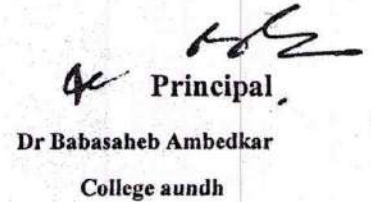 Principal
Dr Babasaheb Ambedkar
College aundh